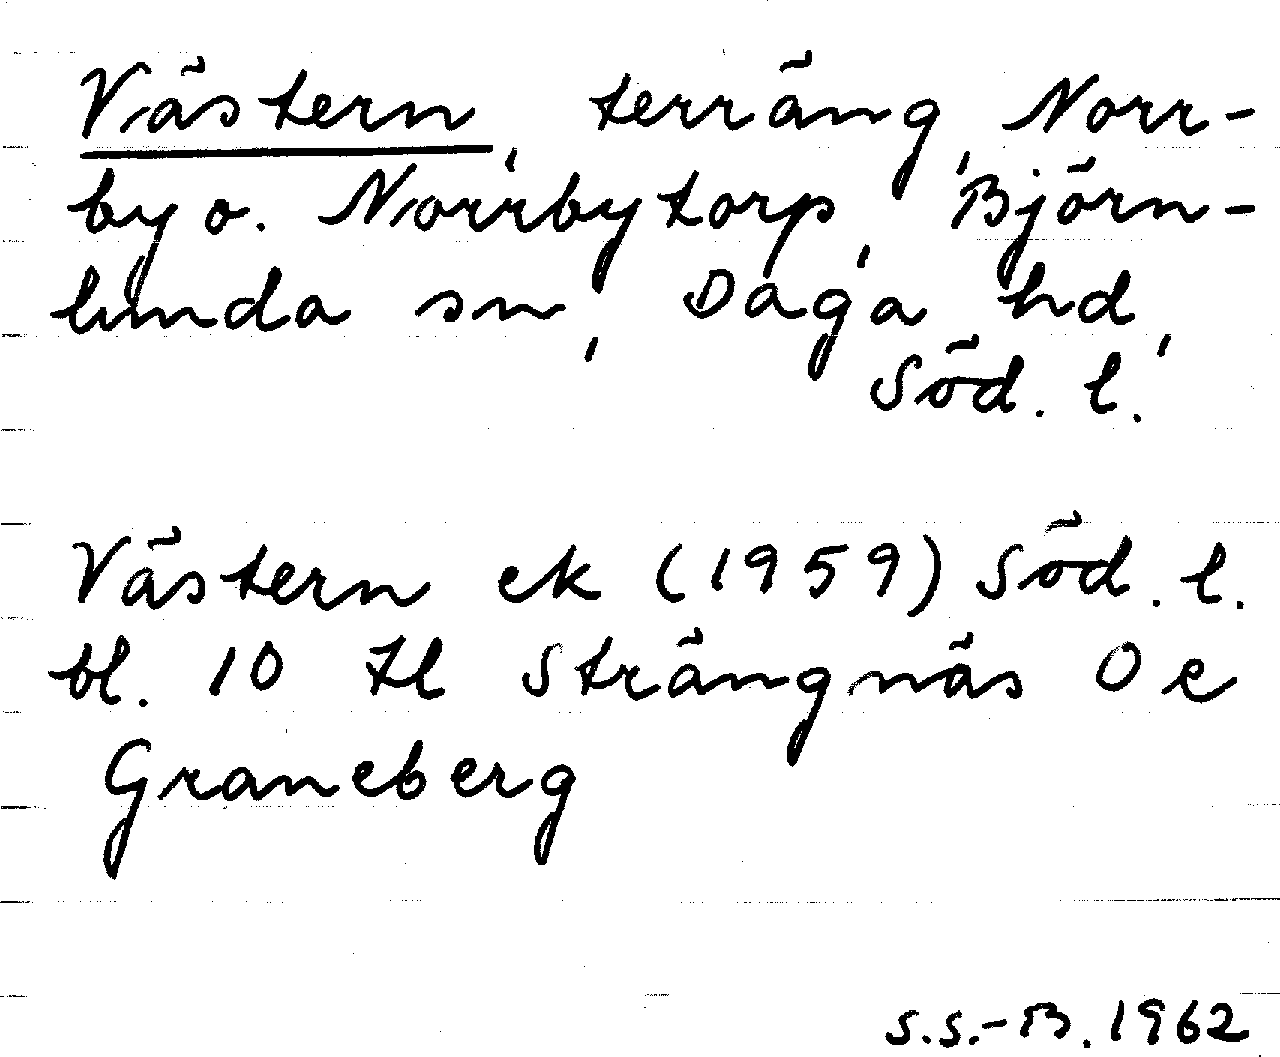 Västern, terräng, Norr-
by o. Norrbytorp, Björn-
lunda sn, Daga hd,
Söd. l.
Västern ek (1959) Söd. l.
bl. 10 Il Strängnäs O e
Graneberg
S.S.-B. 1962